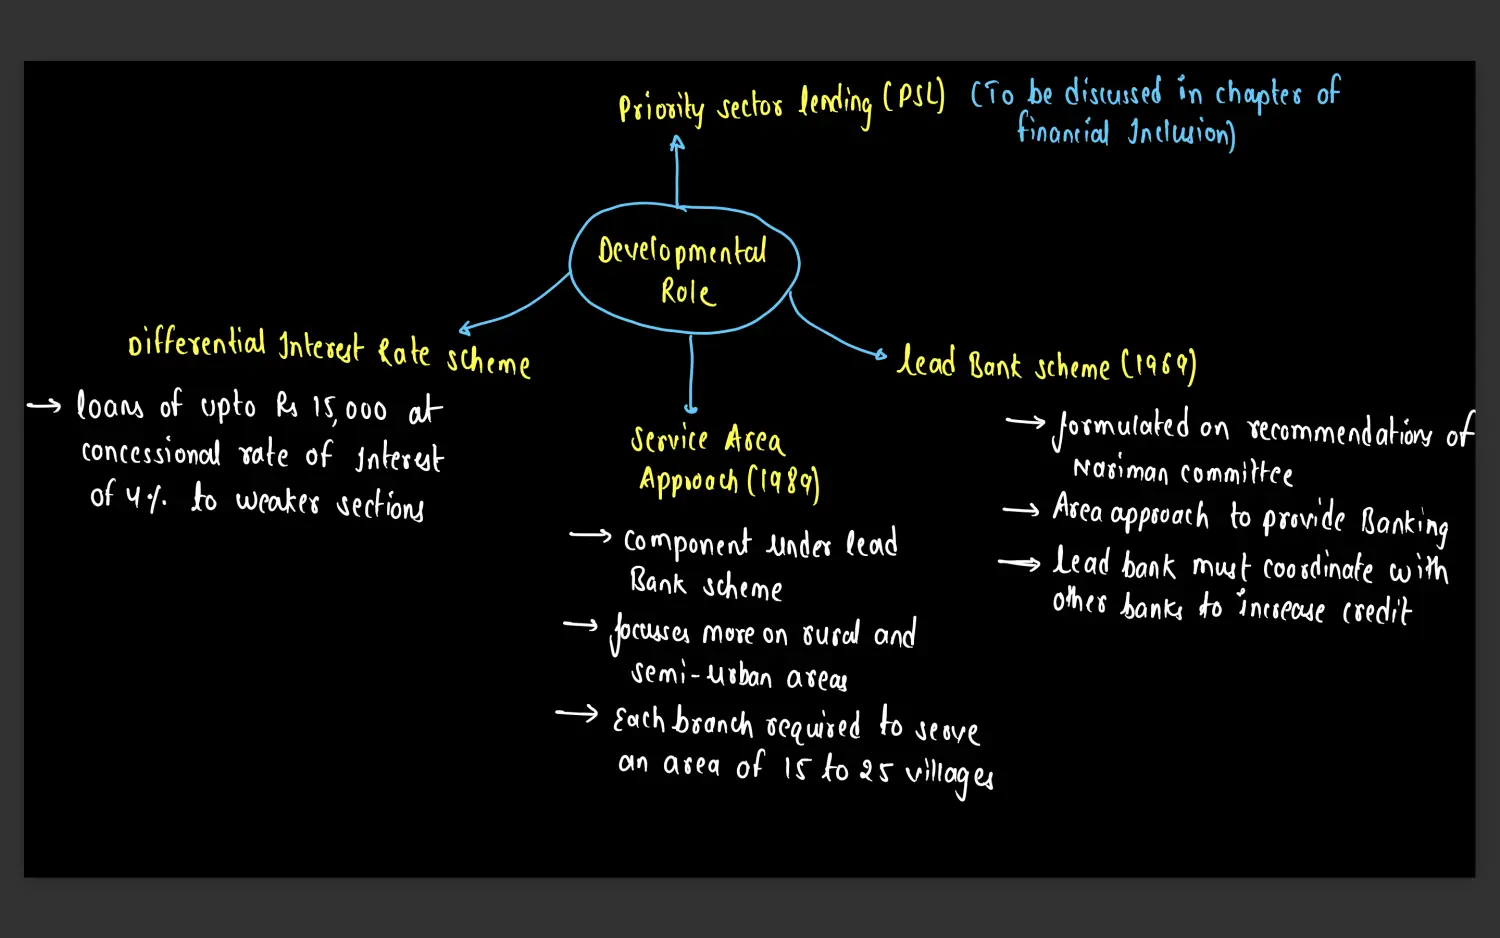 Priority sector lending (PSL) (To be discussed in chapter of
financial Inclusion)
Developmental
Role
Differential Interest Rate scheme
→ loans of upto Rs 15,000 at
concessional rate of Interest
of 4% to weaker sections
Service Area
Approach (1989)
→ component under lead
Bank scheme
→ focusses more on rural and
semi-urban areas
→ Each branch required to serve
an area of 15 to 25 villages
Lead Bank scheme (1969)
→ formulated on recommendations of
Nariman committee
→ Area approach to provide Banking
→ Lead bank must coordinate with
other banks to increase credit